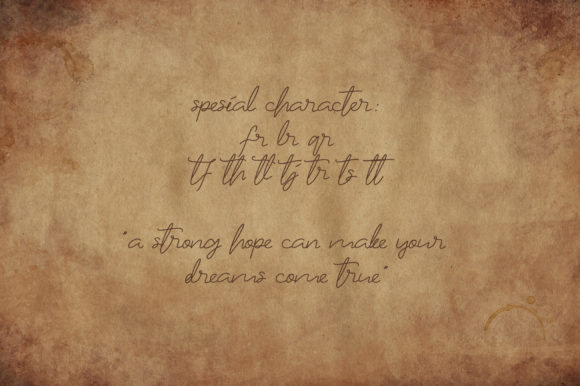 spesial character:
fr br qr
tf th tl tj tr ts tt
"a strong hope can make your
dreams come true"